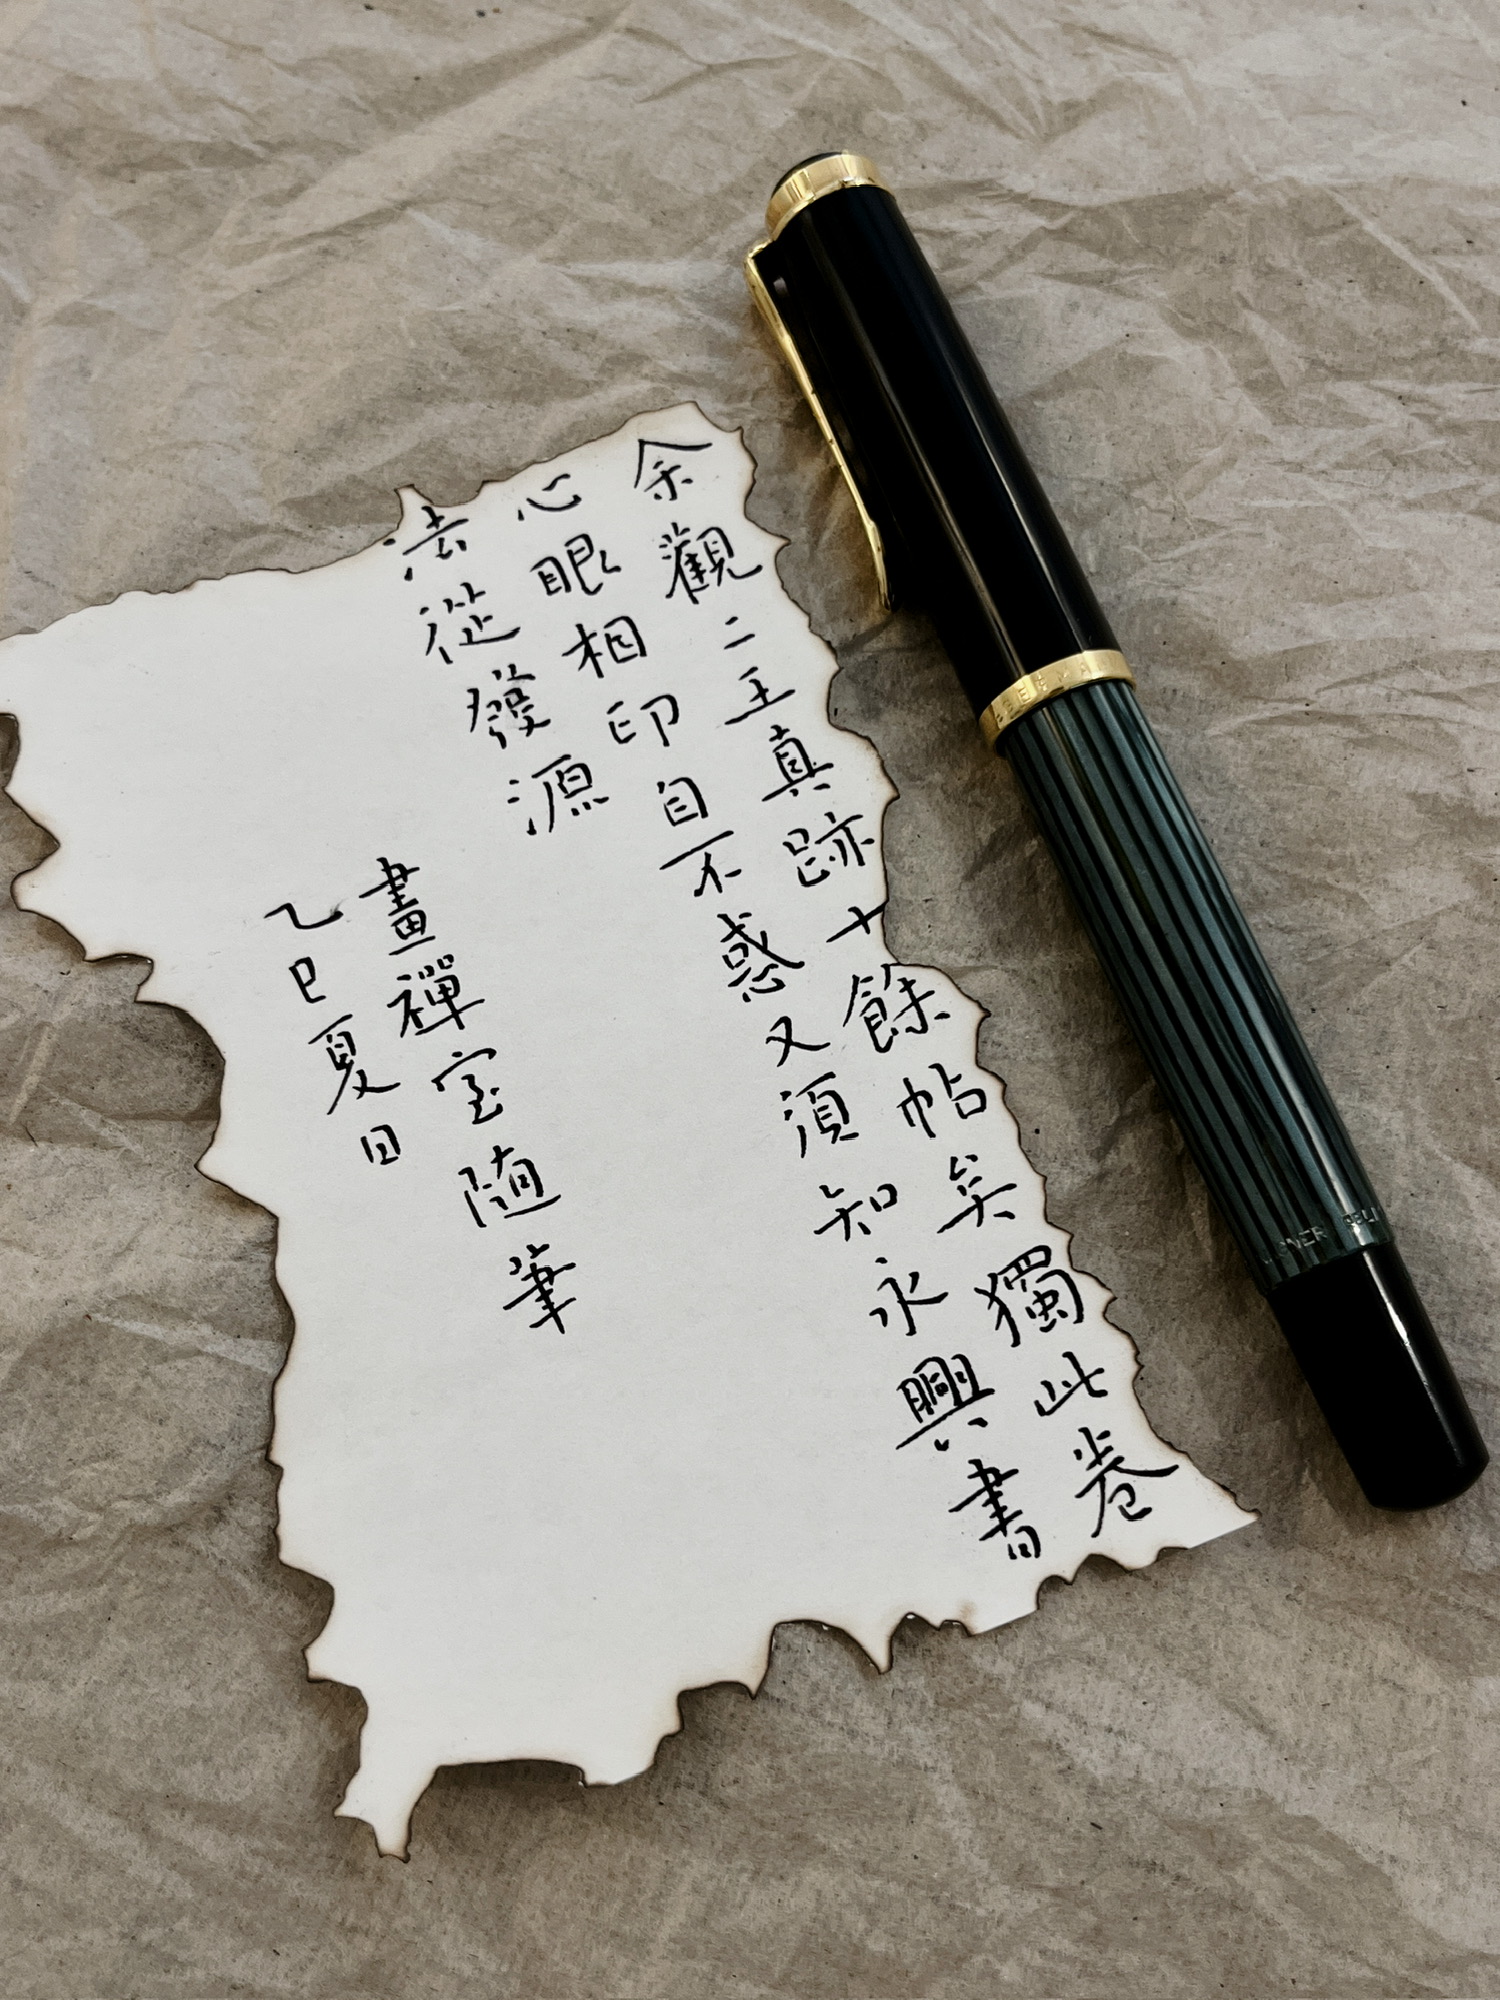 余觀二王真跡十餘帖矣獨此卷
心眼相印自不惑又須知永興書
法從發源
畫禪室随筆
乙巳夏日